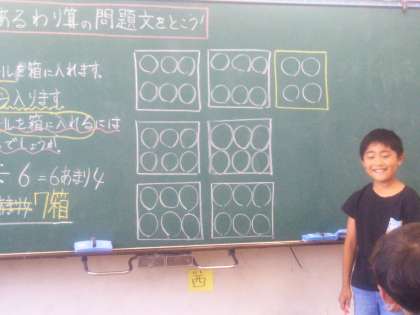 あるわり算の問題文をとこう
ルを箱に入れます。
入ります
ルを箱に入れるには
でしょうか。
÷6=6あまり4
7箱
茜